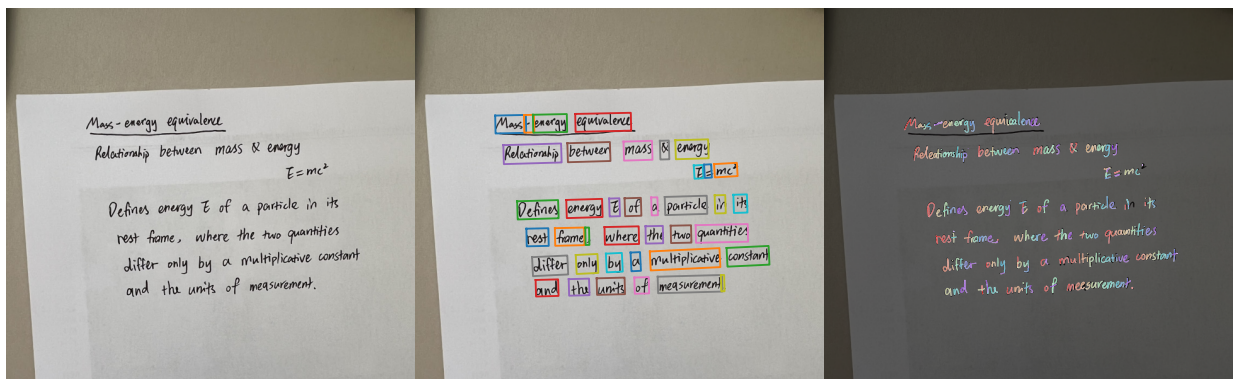 Mass-energy equivalence
Relationship between mass & energy
E=mc²
Defines energy E of a particle in its
rest frame, where the two quantities
differ only by a multiplicative constant
and the units of measurement.
Mass-energy equivalence
Relationship between mass & energy
E=mc²
Defines energy E of a particle in its
rest frame, where the two quantities
differ only by a multiplicative constant
and the units of measurement.
Mass-energy equivalence
Relationship between mass & energy
E=mc²
Defines energy E of a particle in its
rest frame, where the two quantities
differ only by a multiplicative constant
and the units of measurement.